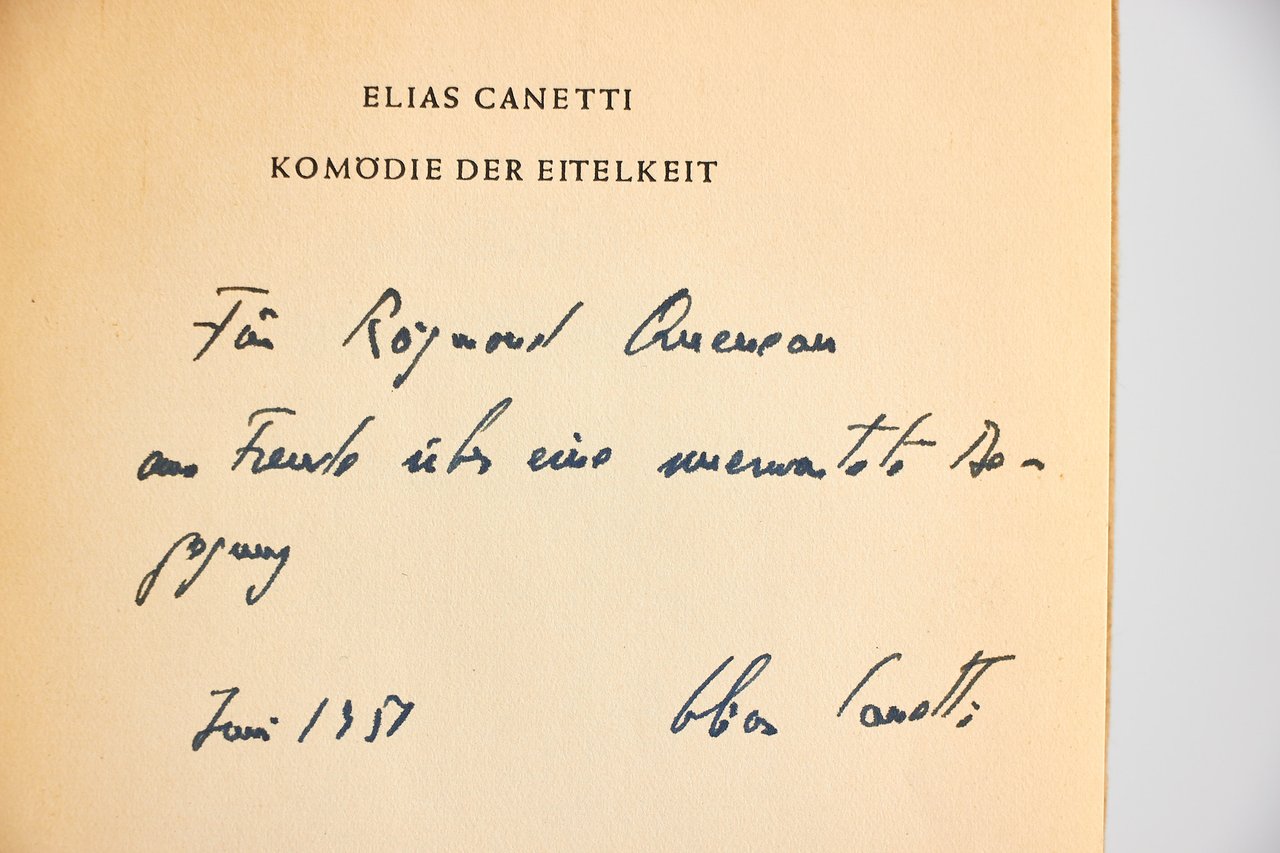 ELIAS CANETTI
KOMÖDIE DER EITELKEIT
Für Raymond Queneau
aus Freude über eine unerwartete Be-
gegnung
Juni 1951
Elias Canetti